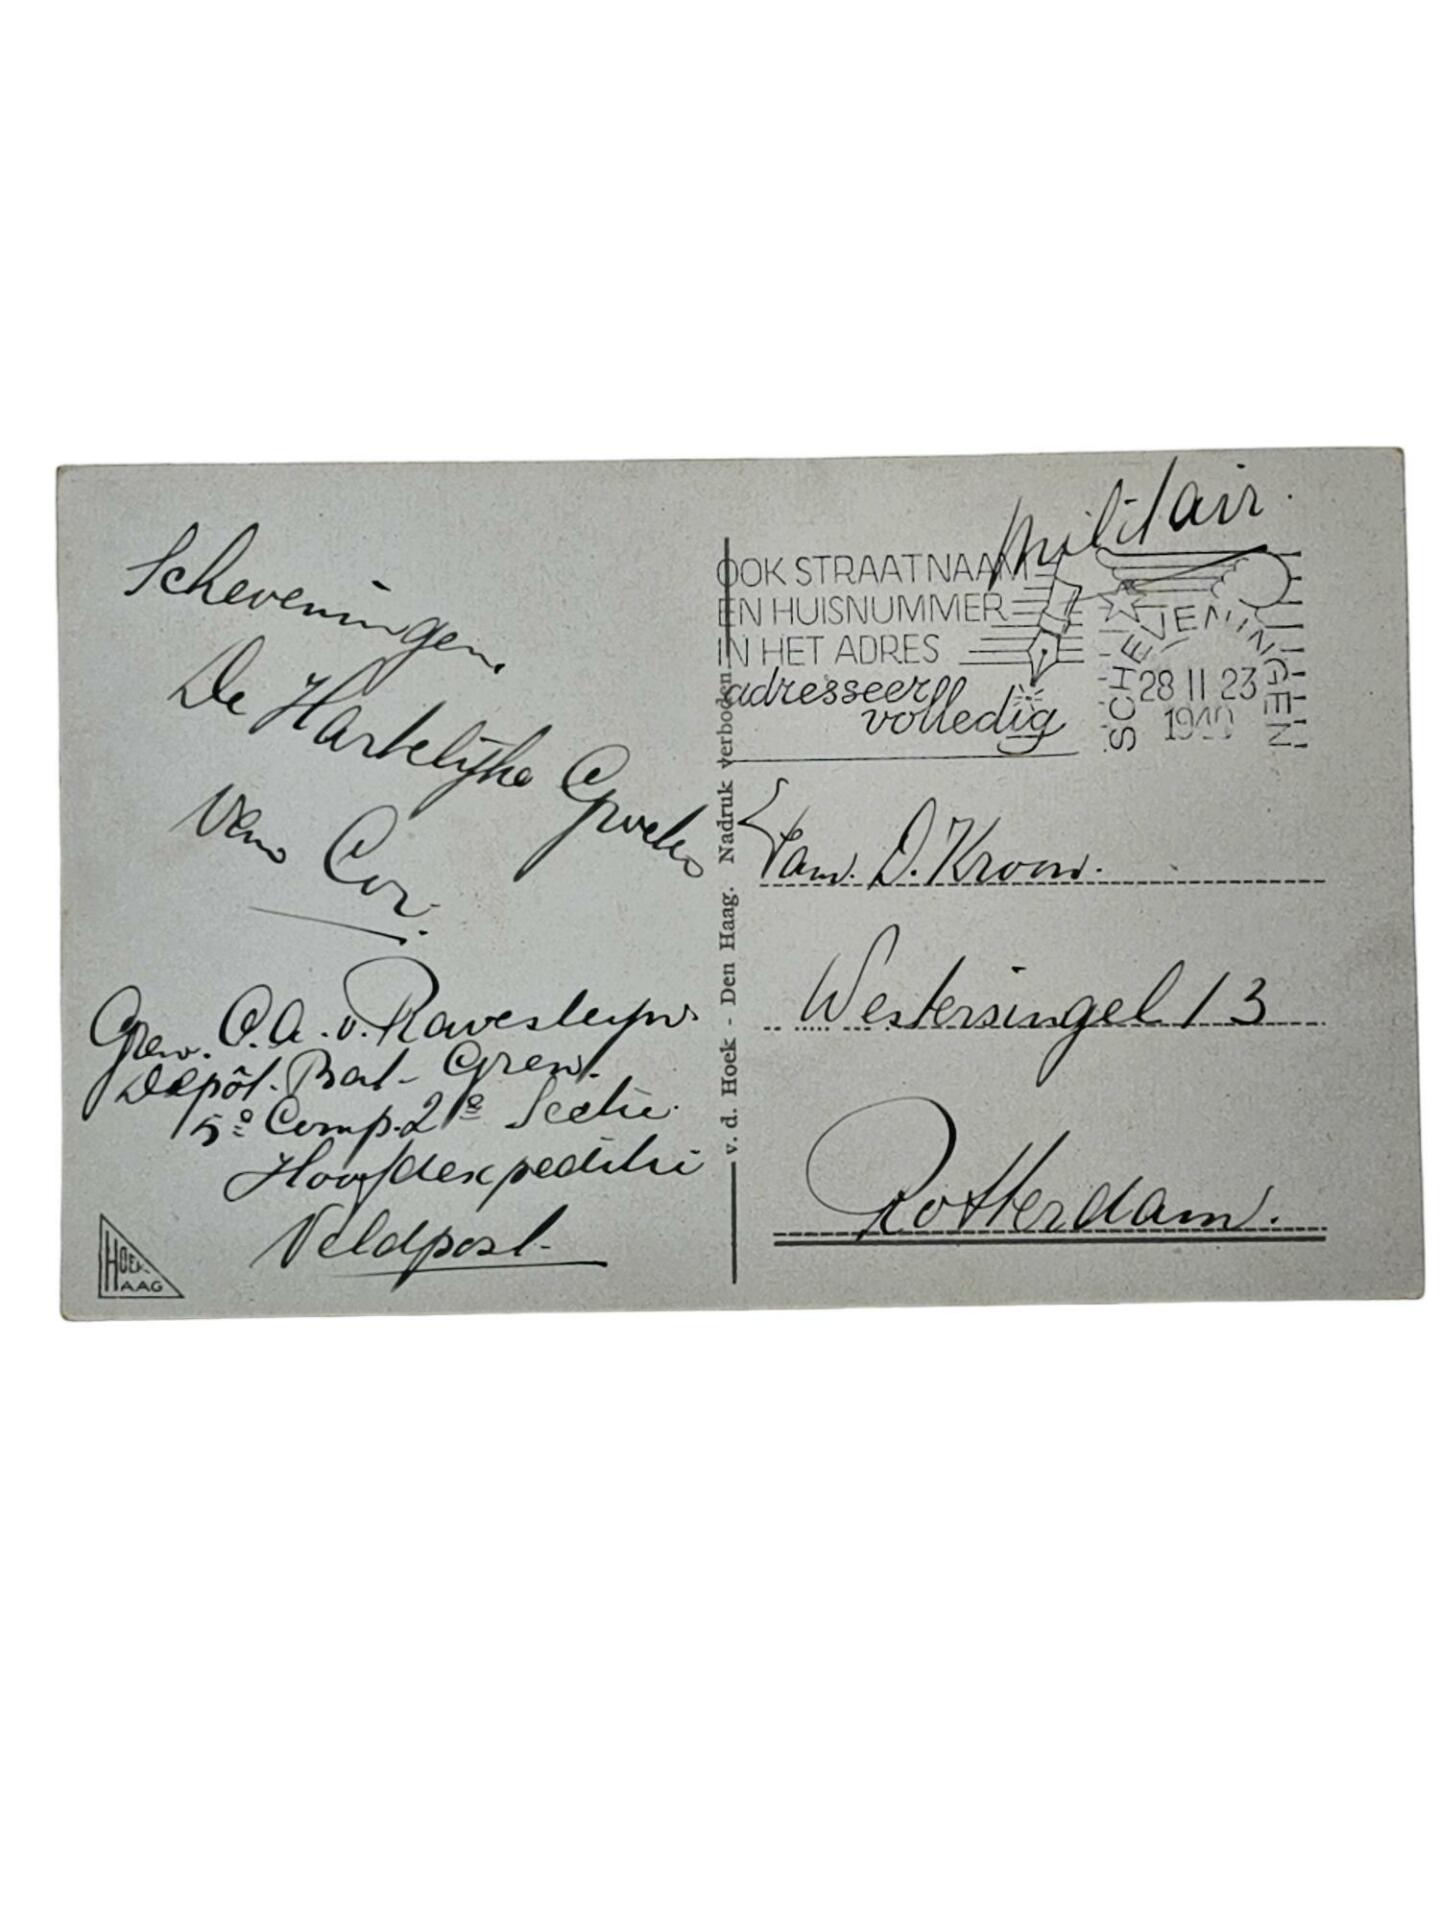 Scheveningen.
De Hartelijke Groeten
van Cor.
Gren. C.A. v. Ravesteijn.
Depôt. Bat. Gren.
5e Comp. 2e Sectie.
Hoofdexpeditie
Veldpost.
HOEK
HAAG
v. d. Hoek - Den Haag. Nadruk verboden.
Militair.
OOK STRAATNAAM
EN HUISNUMMER
IN HET ADRES
adresseer
volledig
SCHEVENINGEN
28 II 23
1940
Fam. D. Kroon.
Westersingel 13
Rotterdam.